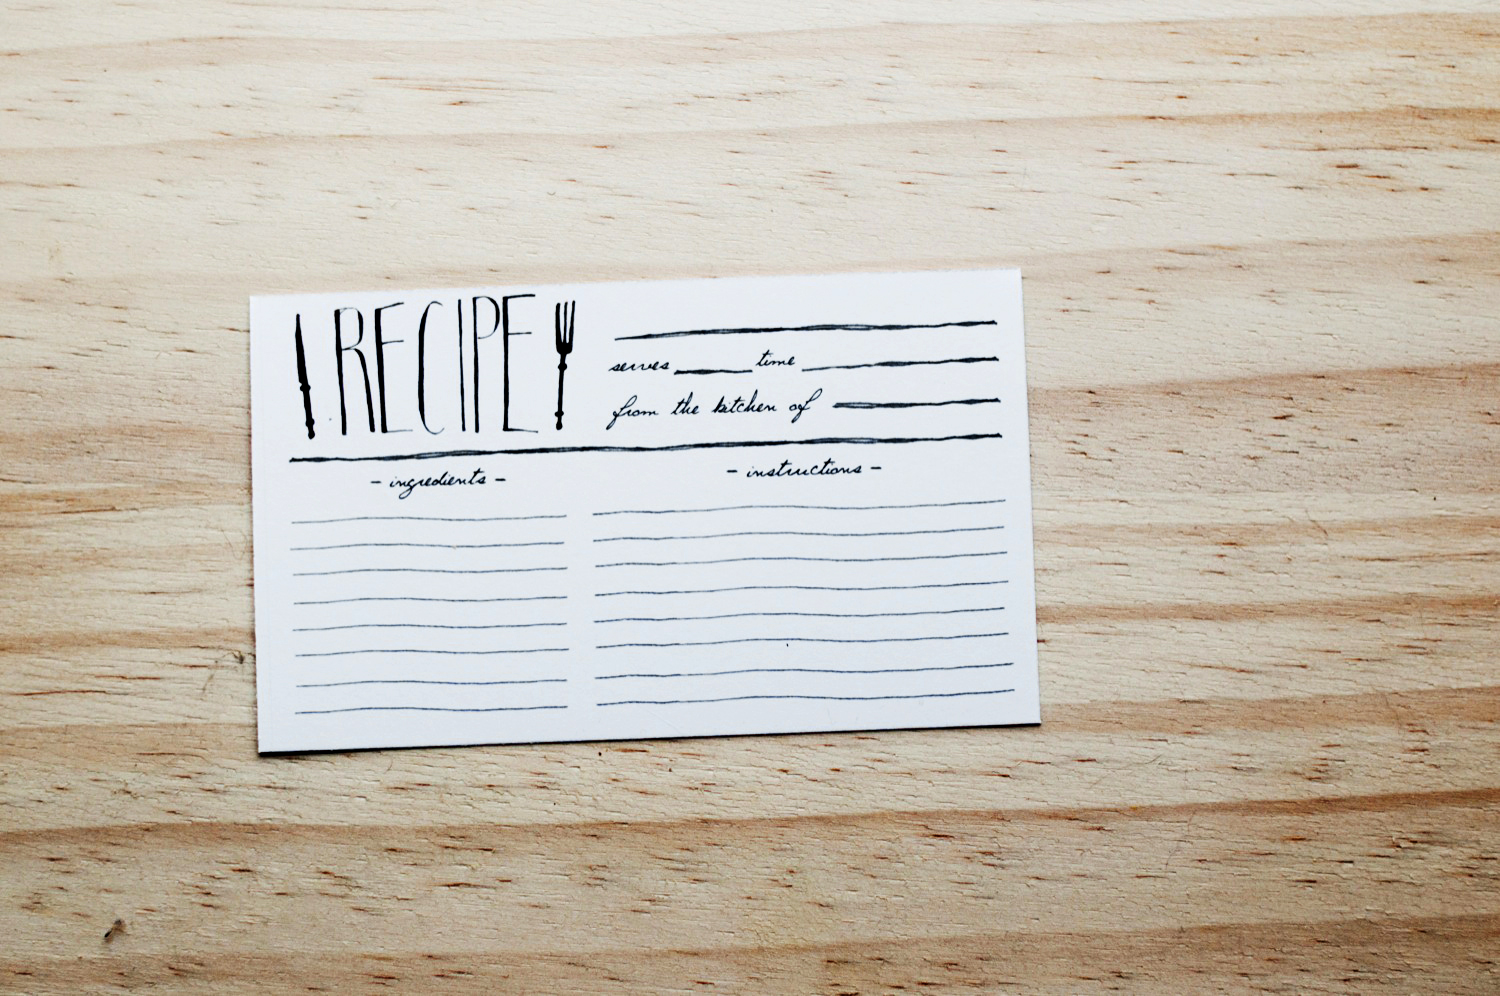 RECIPE
serves time
from the kitchen of
- ingredients -
- instructions -